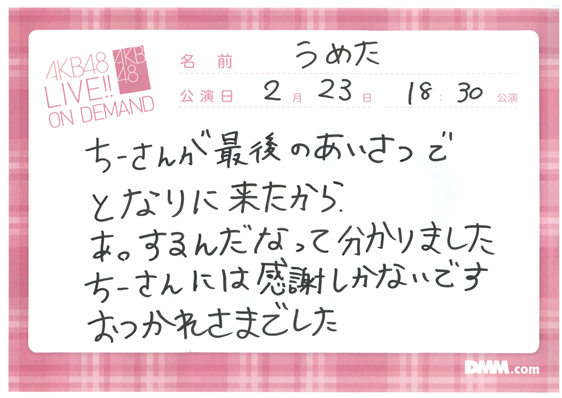 AKB48
LIVE!!
ON DEMAND
AKB
48
名前 うめた
公演日 2月 23日 18:30 公演
ちーさんが最後のあいさつで
となりに来たから.
あ。するんだなって分かりました
ちーさんには感謝しかないです
おつかれさまでした
DMM.com